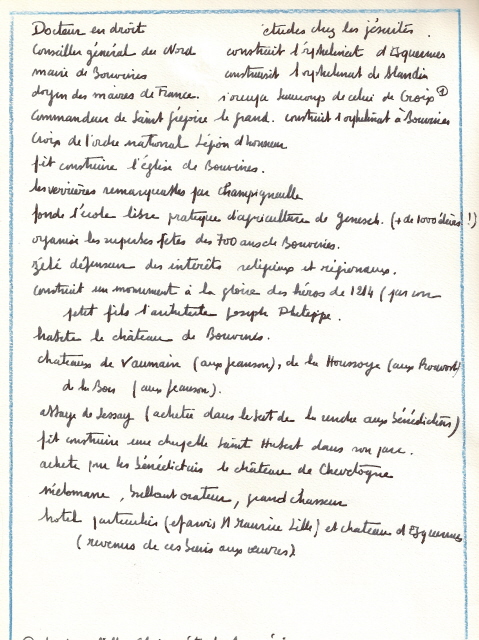 Docteur en droit études chez les jésuites.
Conseiller général du Nord construit l'orphelinat d'Esquermes
maire de Bouvines construisit l'orphelinat de Blandin
doyen des maires de France. s'occupa beaucoup de celui de Croix ①
commandeur de Saint Grégoire le grand. construit l'orphelinat à Bouvines
Croix de l'ordre national Légion d'honneur
fit construire l'église de Bouvines.
les verrières remarquables par Champigneulle
fonde l'école libre pratique d'agriculture de Genech. (+ de 1000 élèves !)
organise les superbes fetes des 700 ans de Bouvines.
zélé défenseur des intérêts religieux et régionaux.
construit un monument à la gloire des héros de 1214 (par son
petit fils l'architecte Joseph Philippe.
habite le château de Bouvines.
chateaux de Vaumain (aux Jeanson), de la Houssoye (aux Prouvost)
de la Bois (aux Jeanson).
abbaye de Lessay (achetée dans le but de la rendre aux bénédictins)
fit construire une chapelle Saint Hubert dans son parc.
achete pour les bénédictins le château de Chevetogne
mélomane, brillant orateur, grand chasseur
hotel particulier (parvis St Maurice Lille) et chateau d'Esquermes
(revenus de ces biens aux œuvres)